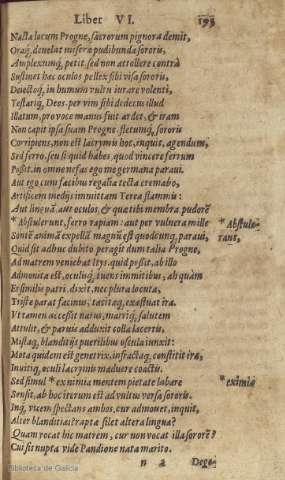 Liber VI. 193
Nacta locum Progne, sacrorum pignora demit,
Oraq́, deuelat miseræ pudibunda sororis,
Amplexumq́, petit. sed non attollere contrà
Sustinet hæc oculos pellex sibi visa sororis,
Deiectoq́, in humum vultu iurare volenti,
Testariq́, Deos. per vim sibi dedecus illud
Illatum, pro voce manus fuit. ardet, & iram
Non capit ipsa suam Progne. fletumq́, sororis
Corripiens, non est lacrymis hoc, inquit, agendum,
Sed ferro, seu si quid habes, quod vincere ferrum
Possit. in omne nefas ego me germana paraui.
Aut ego cum facibus regalia tecta cremabo,
Artificem medijs immittam Terea flammis:
Aut linguā aut oculos, & quæ tibi membra pudorē
* Abstulerunt, ferro rapiam: aut per vulnera mille * Abstule-
Sontē animā expellā. magnū est quodcunq, paraui, rant,
Quid sit adhuc dubito. peragit dum talia Progne,
Ad matrem veniebat Itys. quid possit, ab illo
Admonita est, oculisq́, tuens immitibus, ah quàm
Es similis patri. dixit, nec plura locuta,
Triste parat facinus, tacitaq́, exæstuat ira.
Vt tamen accessit natus, matriq́, salutem
Attulit, & paruis adduxit colla lacertis,
Mistaq́, blanditijs puerilibus oscula iunxit:
Mota quidem est genetrix, infractaq́, constitit ira,
Inuitiq́, oculi lacrymis maduere coactis.
Sed simul * ex mınia mentem pietate labare * eximia
Sensit, ab hoc iterum est ad vultus versa sororis.
Inq́, vicem spectans ambos, cur admouet, inquit,
Alter blanditias? rapta silet altera lingua?
Quam vocat hic matrem, cur non vocat illa sororē?
Cui sis nupta vide Pandione nata marito.
n a Dege-
Biblioteca de Galicia